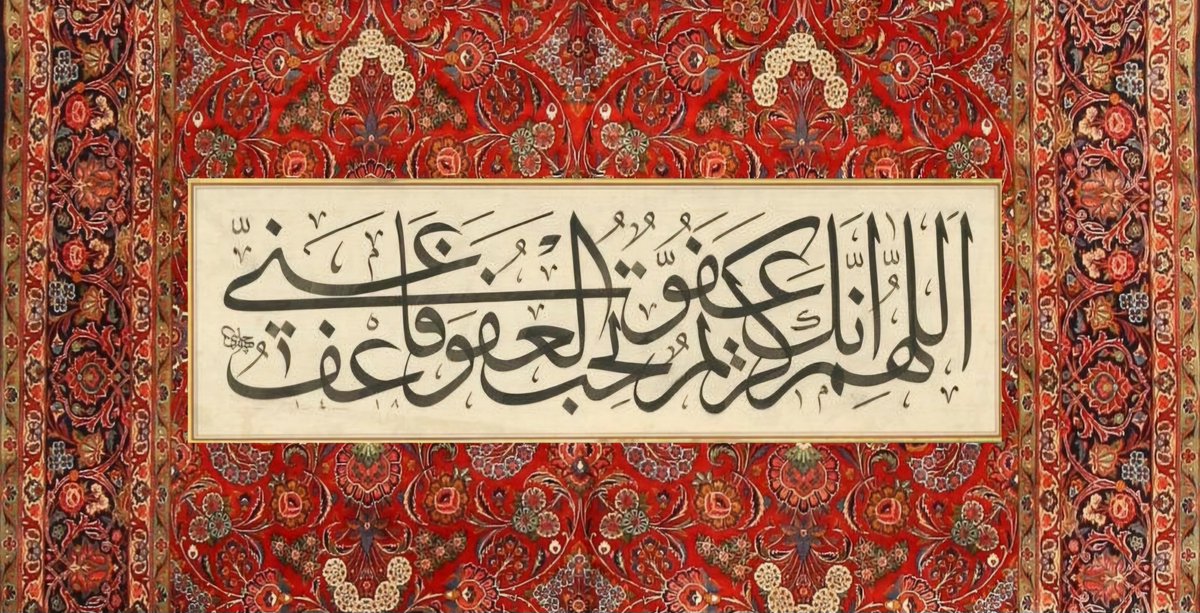 اللهم انك عفو كريم تحب العفو فاعف عني